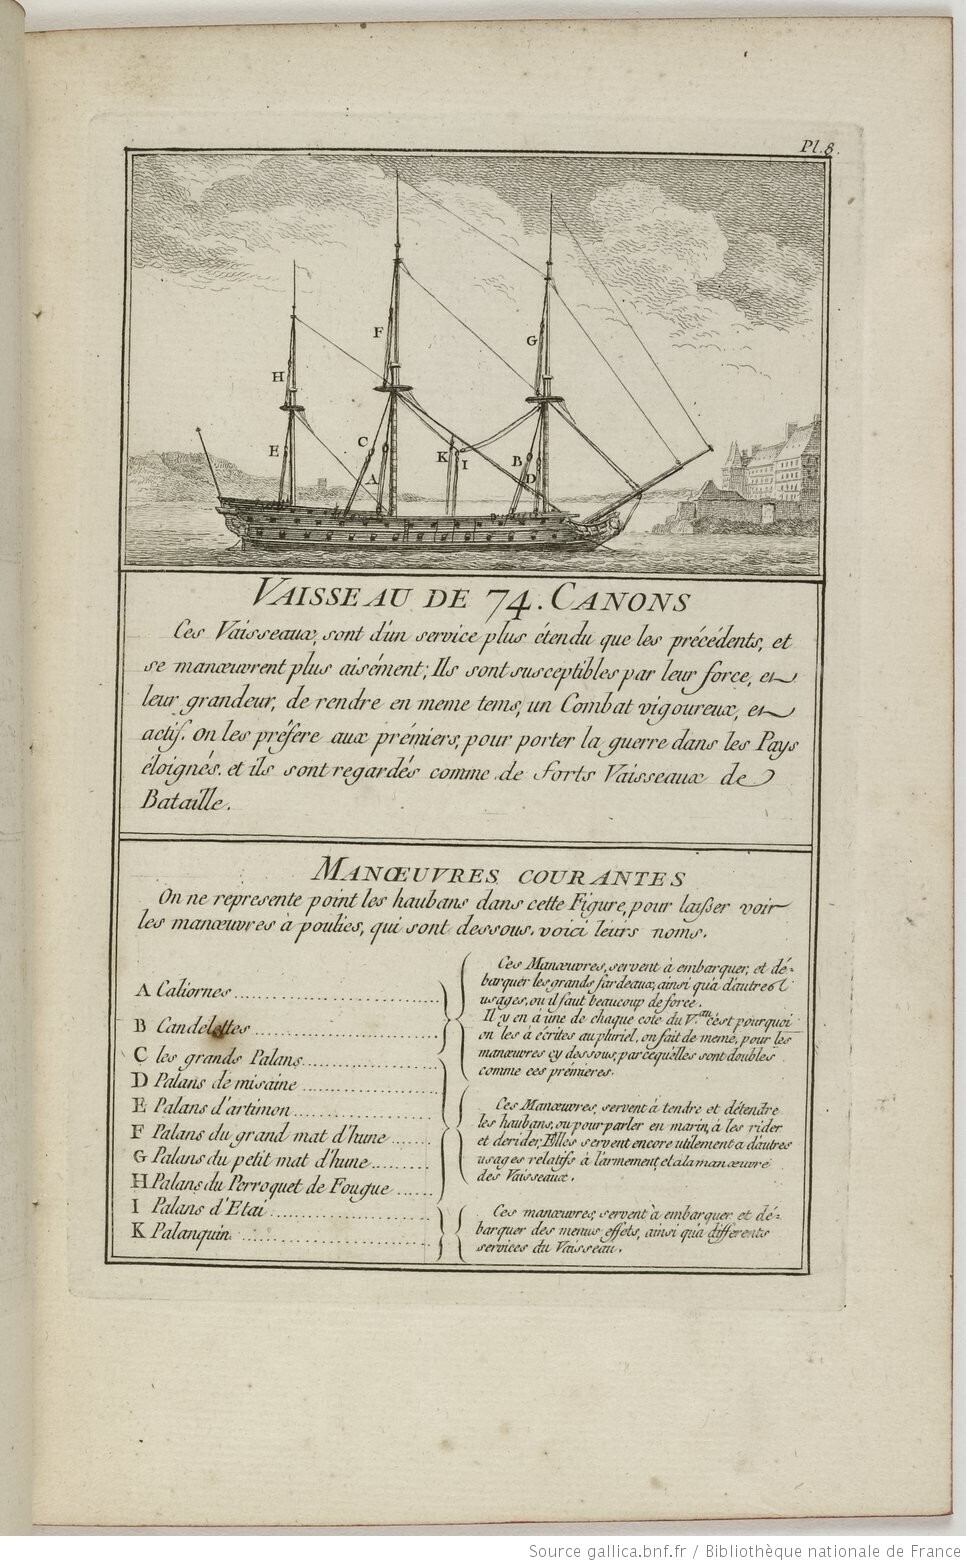 Pl. 8.
F
G
H
C
E
K
I
B
A
D
VAISSEAU DE 74. CANONS
Ces Vaisseaux, sont d'un service plus étendu que les précédents, et
se manœuvrent plus aisément; Ils sont susceptibles par leur force, et
leur grandeur, de rendre en meme tems, un Combat vigoureux, et
actif. On les préfere aux prémiers, pour porter la guerre dans les Pays
éloignés. et ils sont regardés comme de forts Vaisseaux de
Bataille.
MANŒUVRES COURANTES
On ne represente point les haubans dans cette Figure, pour laisser voir
les manœuvres à poulies, qui sont dessous. voici leurs noms.
A Caliornes
B Candelettes
C les grands Palans
D Palans de misaine
E Palans d'artimon
F Palans du grand mat d'hune
G Palans du petit mat d'hune
H Palans du Perroquet de Fougue
I Palans d'Etai
K Palanquin
Ces Manœuvres, servent à embarquer, et dé-
barquer les grands fardeaux, ainsi qu'à d'autres
usages, ou il faut beaucoup de force.
Il y en à une de chaque coté du V.au c'est pourquoi
on les à écrites au pluriel, on fait de meme, pour les
manœuvres cy dessous, parcequ'elles sont doubles
comme ces prémieres.
Ces Manœuvres, servent à tendre et détendre
les haubans, ou pour parler en marin, à les rider
et derider, Elles servent encore utilement a d'autres
usages relatifs à l'armement, et a la manœuvre
des Vaisseaux.
Ces manœuvres, servent à embarquer et dé-
barquer des menus effets, ainsi qu'à différents
services du Vaisseau.
Source gallica.bnf.fr / Bibliothèque nationale de France